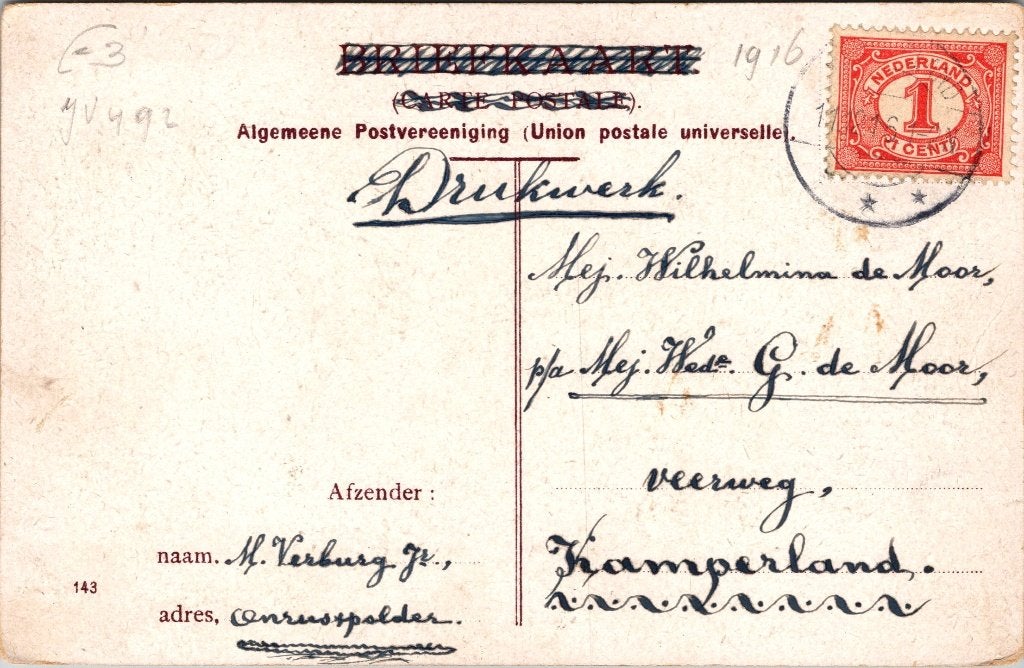 (-3
1916
BRIEFKAART.
(CARTE POSTALE).
JV492
Algemeene Postvereeniging (Union postale universelle).
NEDERLAND
1
1 CENT
Drukwerk.
Mej. Wilhelmina de Moor,
p/a Mej. Wede. G. de Moor,
veerweg,
Kamperland.
Afzender:
naam. M. Verburg Jr.,
adres, Onrustpolder.
143